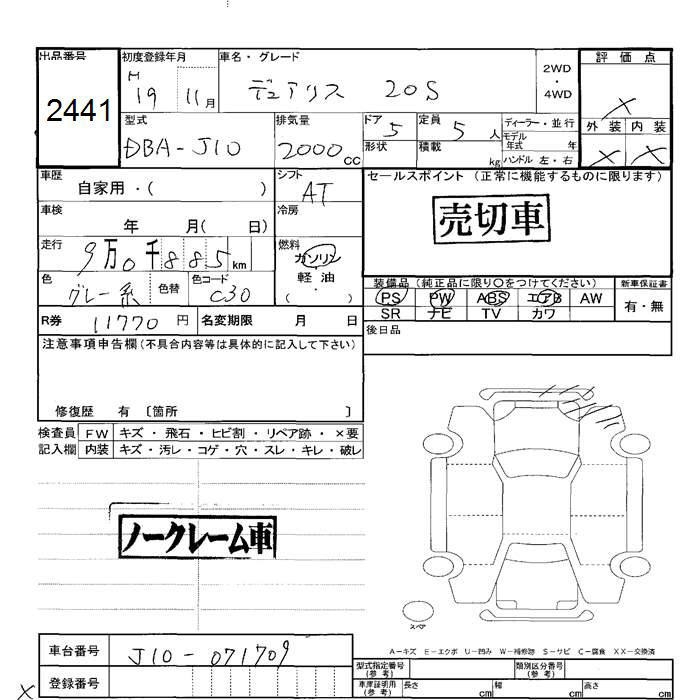 出品番号 初度登録年月 車名・グレード 2WD・4WD 評価点
2441 H 19 11月 デュアリス 20S ×
型式 排気量 ドア 5 定員 5人 ディーラー・並行 外装 内装
DBA-J10 2000cc 形状 積載 kg モデル年式 年 ハンドル 左・右 × ×
車歴 自家用・( ) シフト AT セールスポイント(正常に機能するものに限ります)
車検 年 月( 日) 冷房 売切車
走行 9万0千885km 燃料 ガソリン
軽油
色 グレー系 色替 色コード C30 ( ・ )
装備品(純正品に限り○をつけてください) 新車保証書
PS PW ABS エアB AW 有・無
SR ナビ TV カワ
R券 11770円 名変期限 月 日 後日品
注意事項申告欄(不具合内容等は具体的に記入して下さい)
修復歴 有 〔箇所 〕
検査員 FW キズ・飛石・ヒビ割・リペア跡・×要
記入欄 内装 キズ・汚レ・コゲ・穴・スレ・キレ・破レ
ノークレーム車
スペア
A−キズ E−エクボ U−凹み W−補修跡 S−サビ C−腐食 XX−交換済
車台番号 J10-071709
型式指定番号(参考) 類別区分番号(参考)
登録番号
車庫証明用(参考) 長さ cm 幅 cm 高さ cm
×